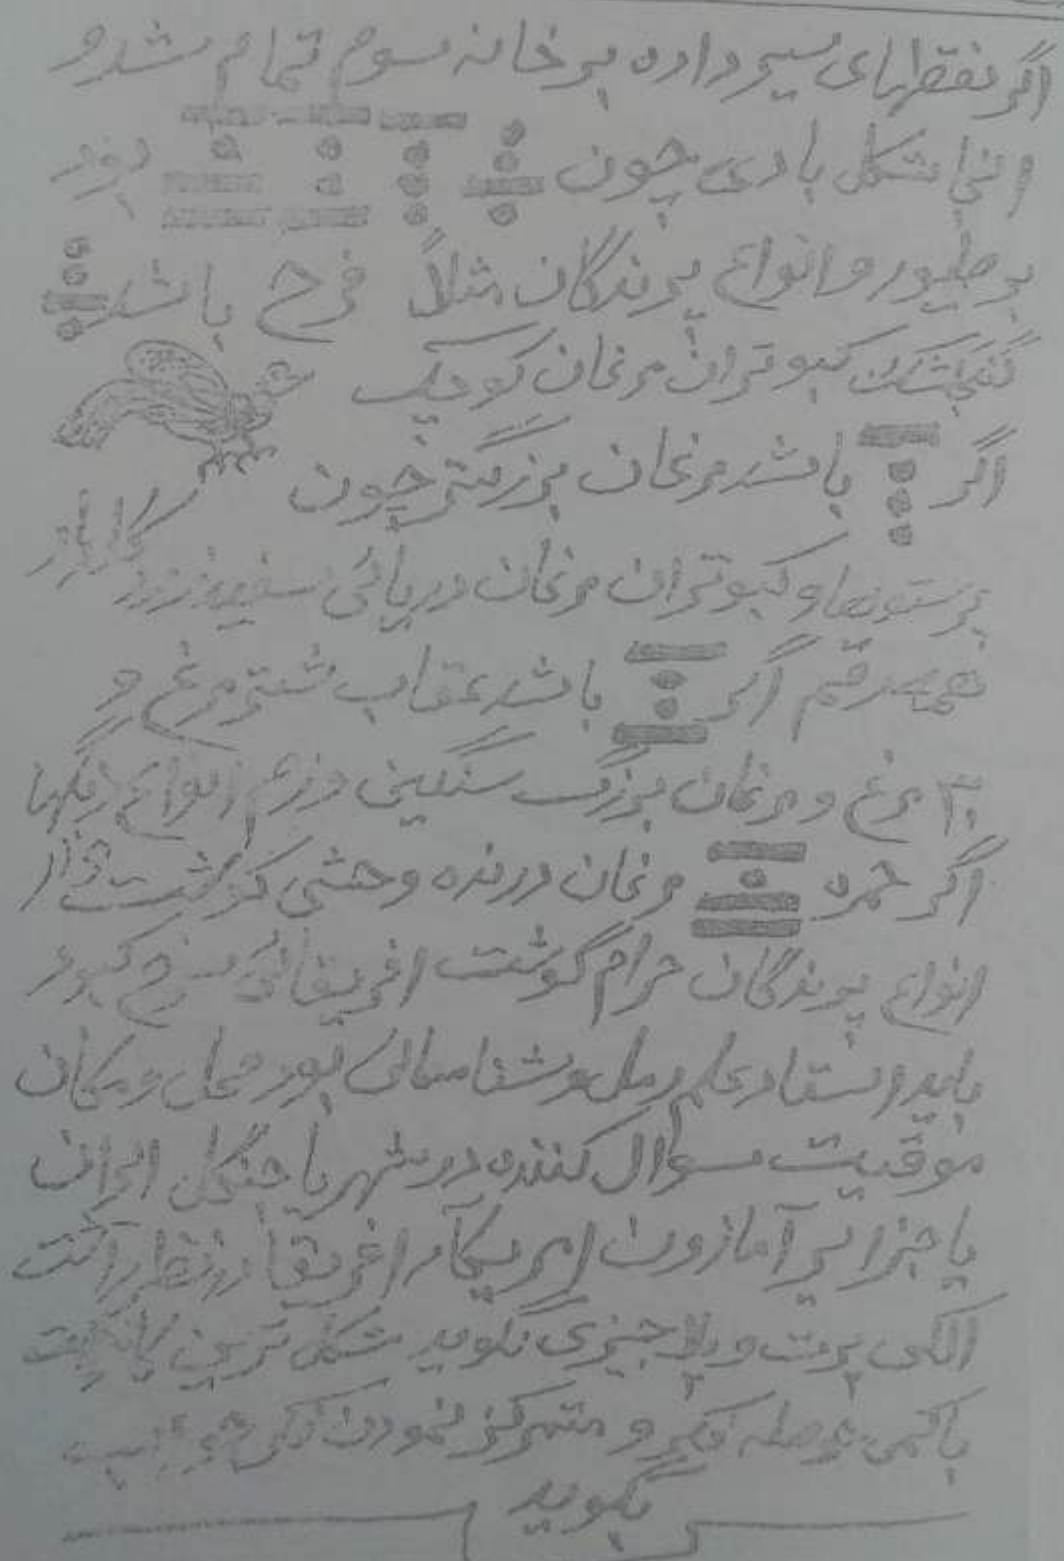 اگر نقطهای سیر داده بر خانه سوم تمام شد و
آنجا شکل بادی چون بود
بر طیور و انواع پرندگان مثلاً فرح باشد
گنجشک کبوتران مرغان کوچک
اگر باشد مرغان بزرگتر چون
پرستوها و کبوتران مرغان دریائی سفید زرد
همه رقم اگر باشد عقاب شترمرغ و
مرغ و مرغان بزرگ سنگین وزن انواع رنگها
اگر حمره مرغان درنده وحشی گوشت
انواع پرندگان حرام گوشت افریقائی سرخ کبود
باید استاد علم رمل و شناسائی بود محل و مکان
موقیت سوال کننده در شهر یا جنگل ایران
یا جزایر آمازون امریکا افریقا در نظر داشت
الکی پرت و پلا چیزی نگوید مشکل ترین
با کمی حوصله فکر و متمرکز نمودن فکر جواب
بگوید